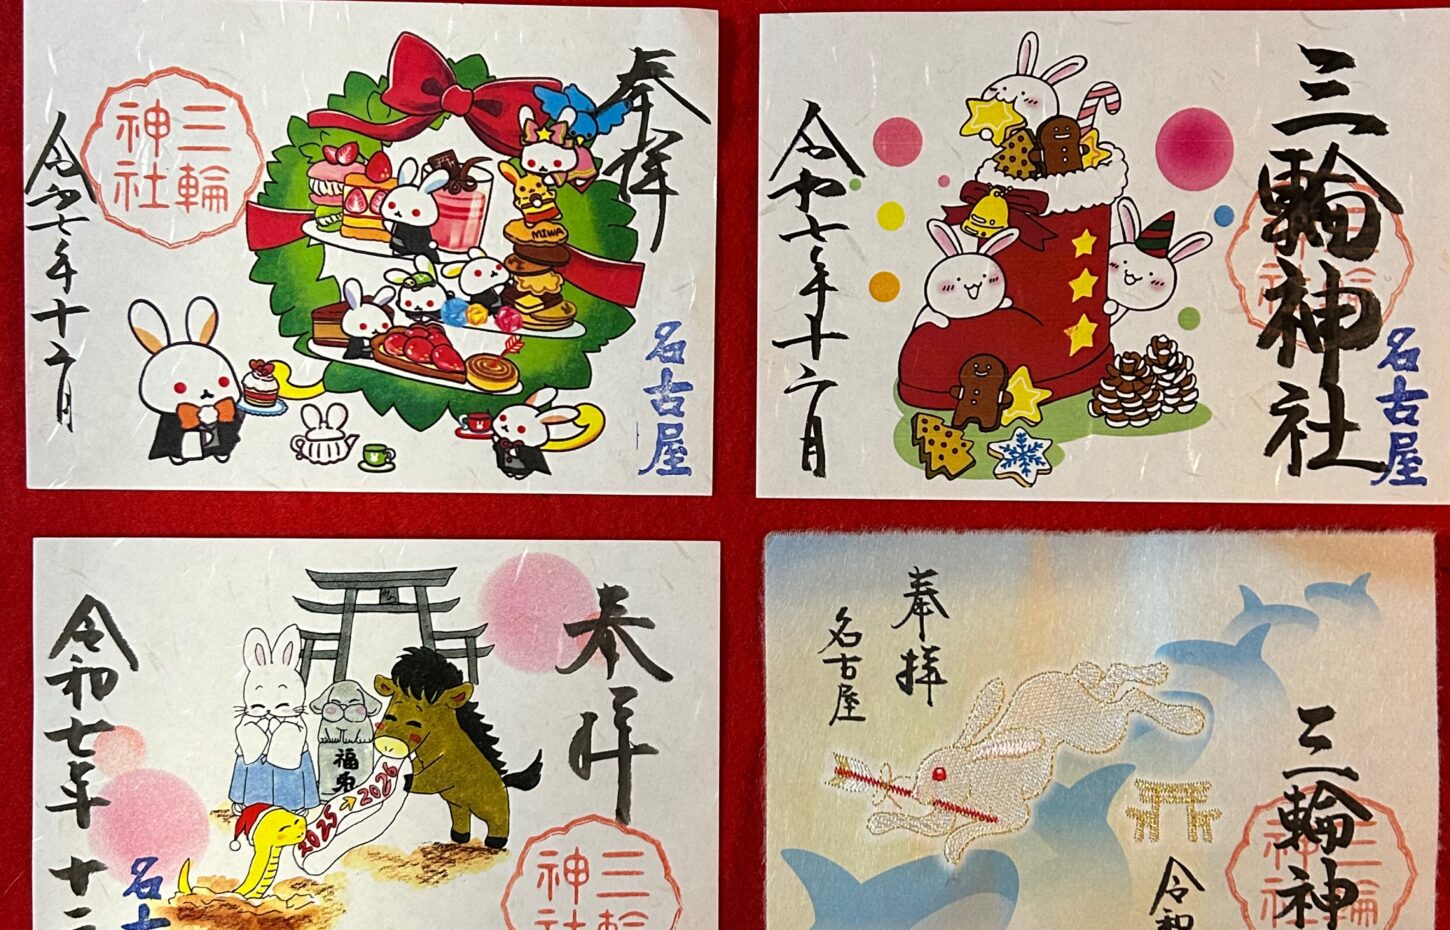 奉拝
三輪
神社
MIWA
名古屋
令和七年十二月
三輪神社
名古屋
令和七年十二月
奉拝
福兎
2025→2026
三輪
神
令和七年十二
名
奉拝
名古屋
三輪神
令和